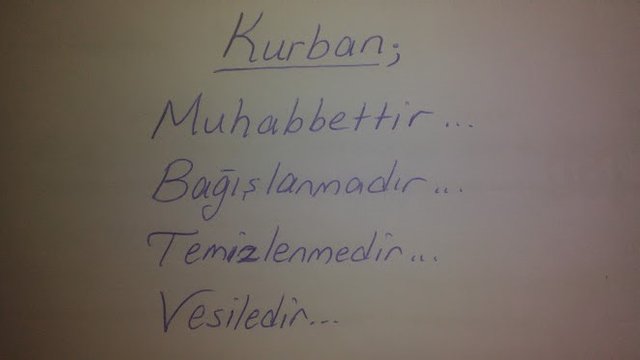 Kurban;
Muhabbettir...
Bağışlanmadır...
Temizlenmedir...
Vesiledir...